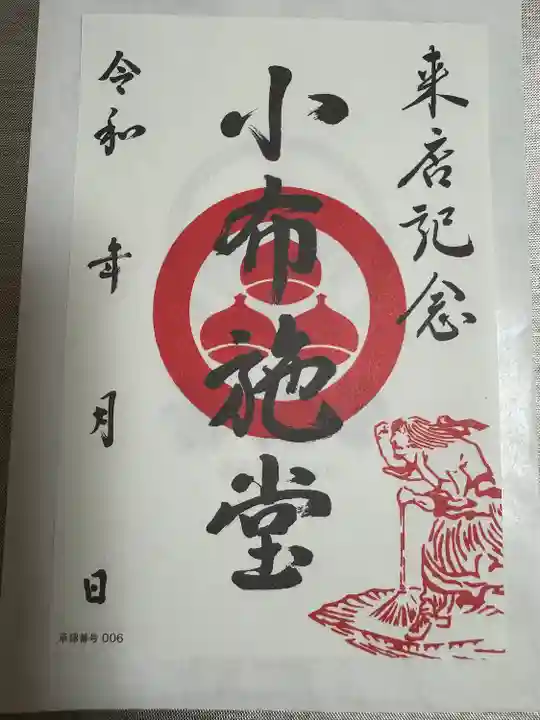 来店記念
小布施堂
令和 年 月 日
承認番号 006